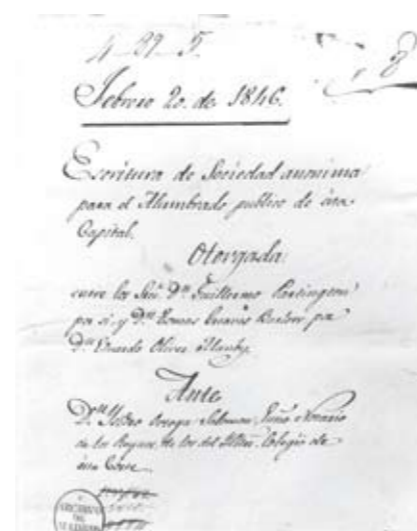 4 39 5.
Febrero 20. de 1846.
Escritura de Sociedad anonima
para el Alumbrado publico de esta
Capital.
Otorgada
entre los Señ. Dn Guillermo Partington
por si y Dn Tomas por
Dn Eduardo Oliver Manby.
Ante
Dn Ysidro Ortega Salomon, Notario
de los Reynos, de los del Colegio de
esta Corte